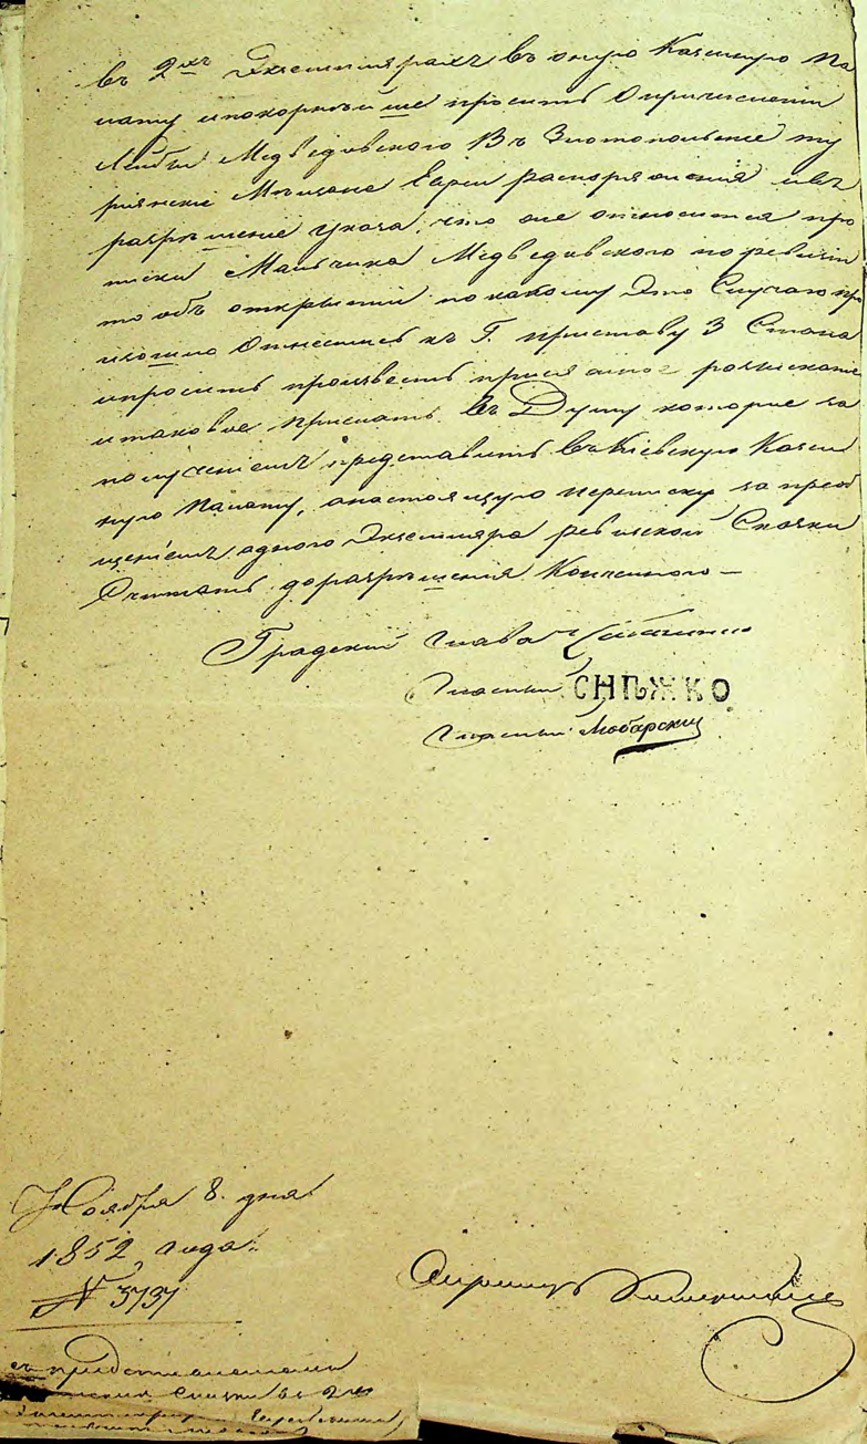 въ 2хъ Экземплярахъ въ оную Казенную Па
лату и покорнѣйше просить о причислении
Лейбы Медведовского въ Златопольские ту
Мещане Евреи распоряжения и въ
разрѣшение указа, что же относится про
писки Мальчика Медведовского по ревизіи
то объ открытии по какому это Случаю про
изошло Отнестись къ Г. приставу 3 Стана
и просить произвесть присяжное розискание
и таковое прислать въ Думу которие за
получениемъ представить въ Киевскую Казен
ную Палату, а настоящую переписку за преоб
щениемъ одного Экземпляра ревизской Сказки
Считать до разрѣшения Конченною —
Градский Глава
Гласный СНѢЖКО
Гласный Любарский
Ноября 8. дня
1852, года.
№ 3737